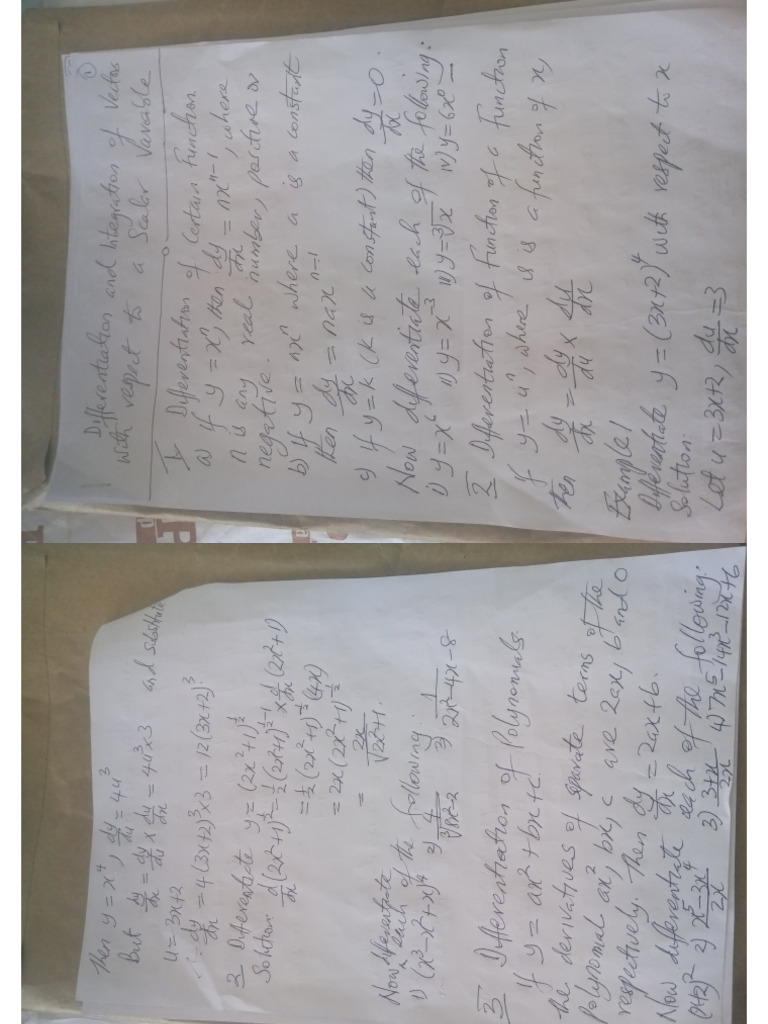 ①
Differentiation and Integration of Vectors
with respect to a Scalar Variable
1 Differentiation of Certain Function
a) If y = xⁿ, then dy/dx = nxⁿ⁻¹, where
n is any real number, positive or
negative.
b) If y = nxⁿ where a is a constant
then dy/dx = naxⁿ⁻¹
c) If y = k (k is a constant) then dy/dx = 0.
Now differentiate each of the following:
i) y = x⁶ ii) y = x⁻³ iii) y = ∛x iv) y = 6x⁰
2 Differentiation of Function of a Function
If y = uⁿ, where is is a function of x,
then dy/dx = dy/du × du/dx
Example 1
Differentiate y = (3x+2)⁴ with respect to x
Solution:
Let u = 3x+2, du/dx = 3
Then y = x⁴, dy/du = 4u³
But dy/dx = dy/du × du/dx = 4u³×3 and substitute
u = 3x+2
∴ dy/dx = 4(3x+2)³ × 3 = 12(3x+2)³
2 Differentiate y = (2x²+1)^½
Solution d/dx (2x²+1)^½ = ½(2x²+1)^(½-1) × d/dx (2x²+1)
= ½(2x²+1)^(-½) (4x)
= 2x(2x²+1)^(-½)
= 2x/√(2x²+1).
Now differentiate
each of the following:
1) (x³-x²+x)¹⁴ 2) 4/∛(6x-2) 3) 1/(2x²-4x-8)
3 Differentiation of Polynomials
If y = ax²+bx+c.
the derivatives of separate terms of the
polynomial ax², bx, c are 2ax, b and 0
respectively. Then dy/dx = 2ax+b.
Now differentiate each of the following:
(x+2)² 2) (x⁵-3x⁴)/2x 3) (3+x)/2x 4) 7x⁵-14x³-12x+6